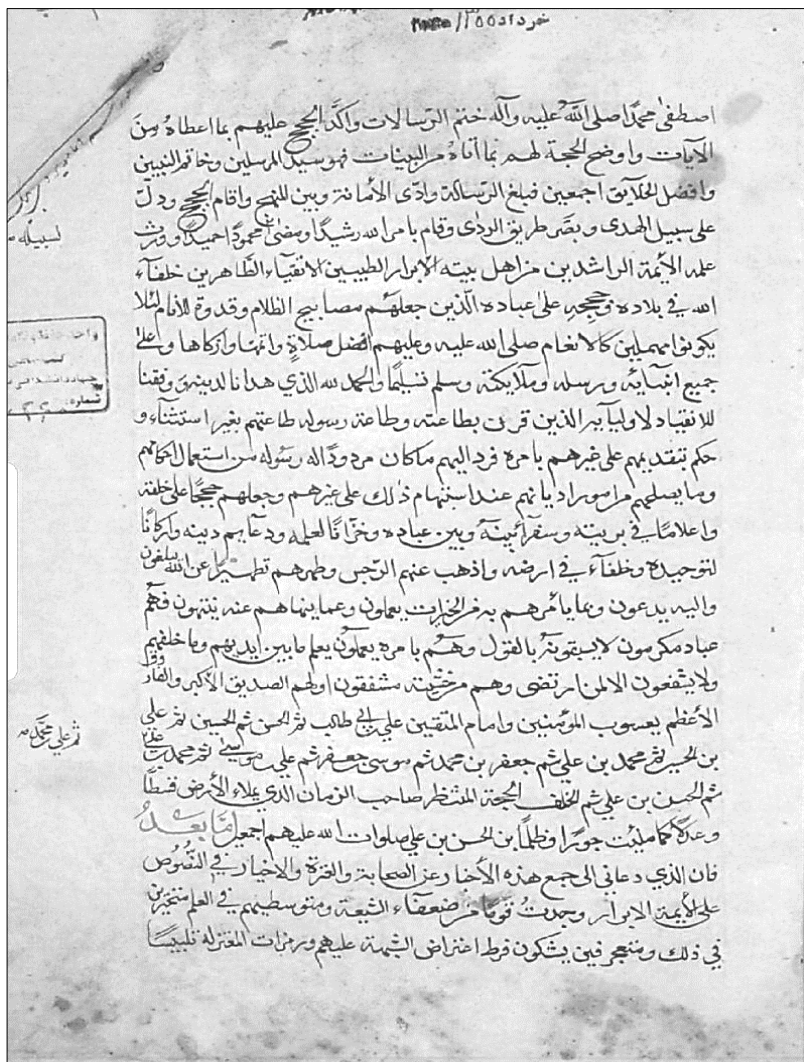 خرداد ۱۱۵۵
اصطفى محمدا صلى الله عليه وآله ختم الرسالات واكّد الحجج عليهم بما اعطاه من
الآيات واوضح الحجة لهم بما أتاه من البينات فهو سيد المرسلين وخاتم النبيين
وافضل الخلايق اجمعين فبلغ الرسالة وادّى الأمانة وبين المنهج واقام الحجج ودلّ
على سبيل الهدى وبصّر طريق الردى وقام بامر الله رشيدًا ومضى محمودًا حميدًا وورث
علمه الأيمة الراشدين من اهل بيته الابرار الطيبين الاتقيآء الطاهرين خلفآء
الله في بلاده وحججه على عباده الّذين جعلهم مصابيح الظلام وقدوة للانام لئلا
يكونوا مهملين كالانعام صلى الله عليه وعليهم افضل صلاةٍ واتمّها وازكاها وعلى
جميع انبيآئه ورسله وملايكته وسلم تسليمًا والحمد لله الذي هدانا لدينه ووفقنا
للانقياد لاوليآئه الذين قرن بطاعته وطاعة رسوله طاعتهم بغير استثنآء و
حكم بتقديمهم على غيرهم بامره فرد اليهم ماكان مردودًا له رسوله من استعمال احكامهم
وما يصلحهم من امور اديانهم عند استبهام ذلك على غيرهم وجعلهم حججًا على خلقه
واعلامًا في بريته وسفرآء بينه وبين عباده وخزّانًا لعلمه ودعآئم دينه واركانًا
لتوحيده وخلفآء في ارضه واذهب عنهم الرّجس وطهرهم تطهيرًا عن الله يبلغون
واليه يدعون وبما يأمرهم به من الخيرات يعملون وعما ينهاهم عنه ينتهون فهم
عباد مكرمون لايسبقونه بالقول وهُم بامره يعملون يعلم مابين ايديهم وما خلفهم
ولايشفعون الا لمن ارتضى وهم من خشيته مشفقون اولهم الصديق الأكبر والفاروق
الأعظم يعسوب المؤمنين وامام المتقين علي بن ابي طالب ثم الحسن ثم الحسين ثم علي
بن الحسين ثم محمد بن علي ثم جعفر بن محمد ثم موسى بن جعفر ثم علي بن موسى ثم محمد بن علي
ثم علي بن محمد
ثم الحسن بن علي ثم الخلف الحجة المنتظر صاحب الزمان الذي يملاء الأرض قسطًا
وعدلًا كما ملئت جورًا وظلمًا بن الحسن بن علي صلوات الله عليهم اجمعين امّا بعدُ
فان الذي دعاني الى جمع هذه الأخبار عن الصحابة والعترة والاخيار في النصُوص
على الأيمة الابرار وجدتُ قومًا من ضعفآء الشيعة ومتوسطيهم في العلم متحيرين
في ذلك ومتعجرفين يشكون فرط اعتراض الشبهة عليهم وزمرات المعتزله تلبيسًا